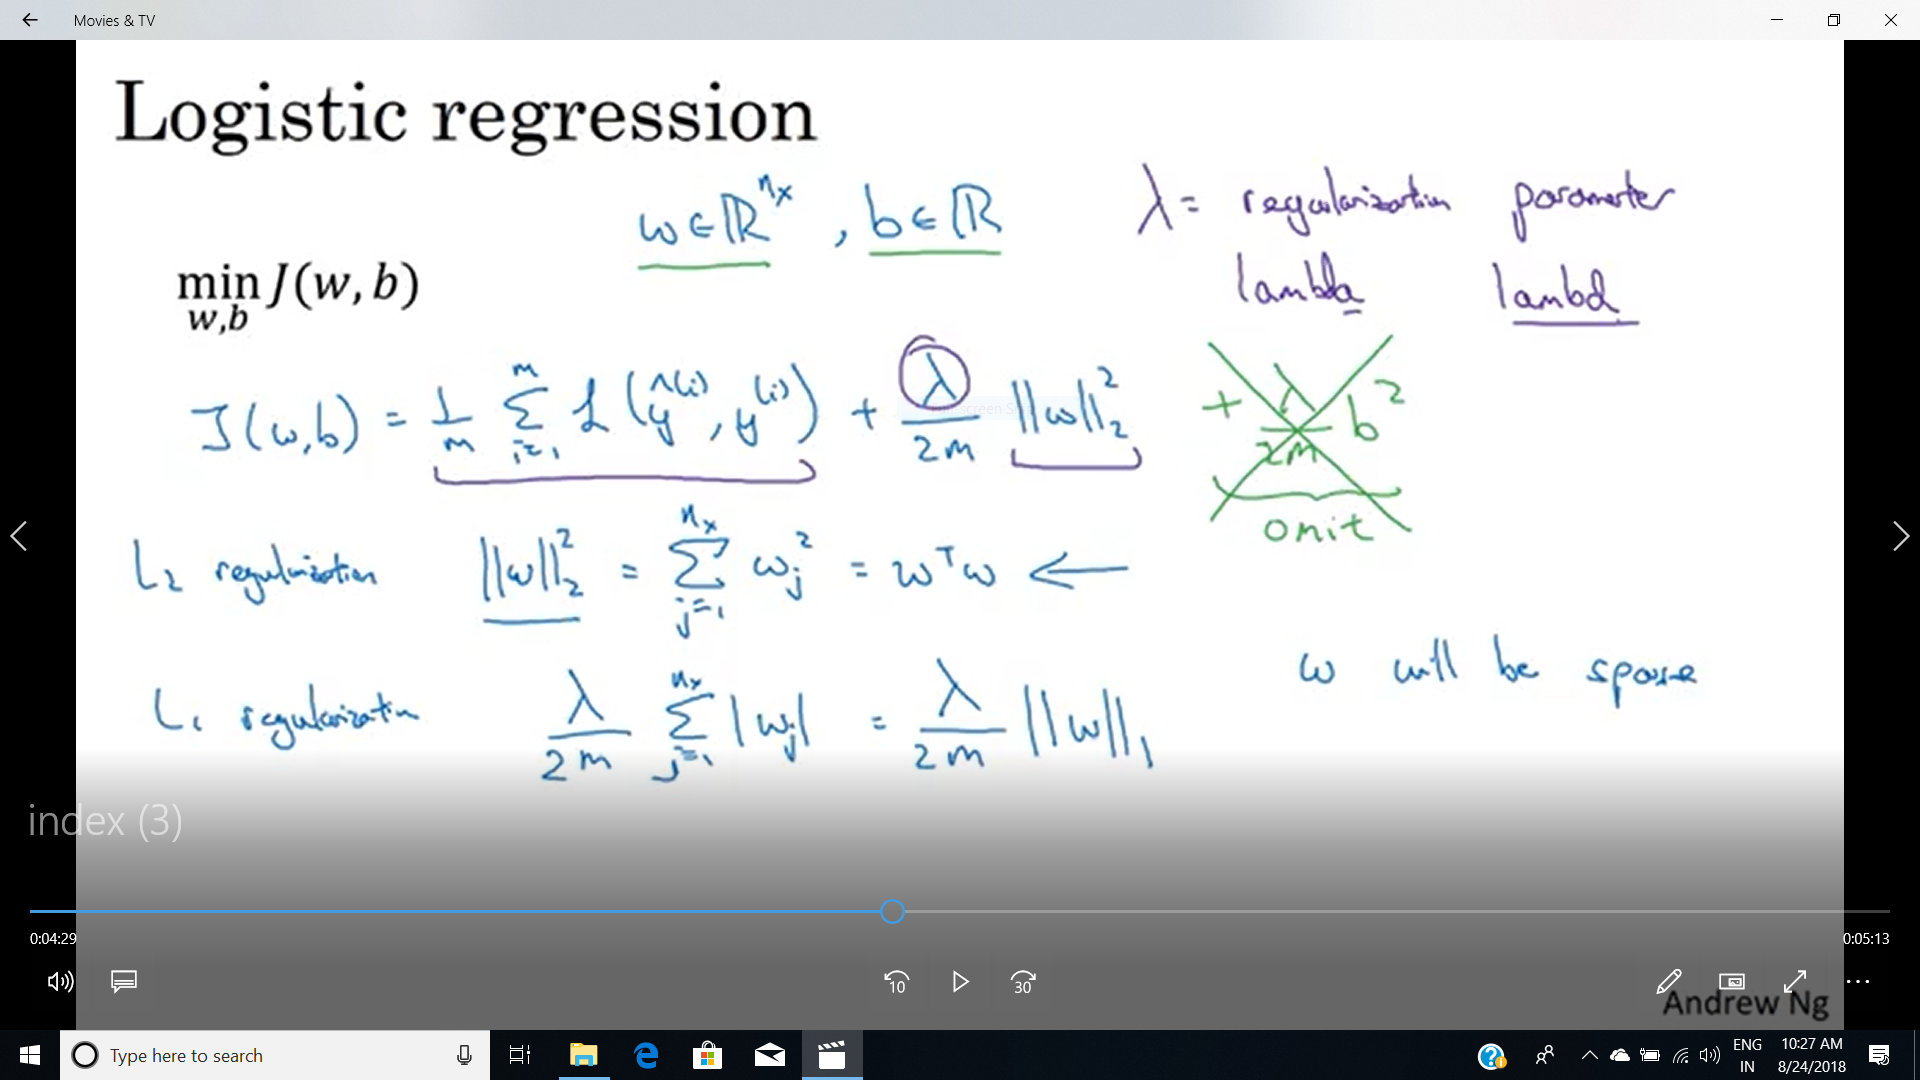 Movies & TV
Logistic regression
w ∈ ℝ^{n_x}, b ∈ ℝ
λ = regularization parameter
lambda lambd
min_{w,b} J(w, b)
J(w,b) = 1/m ∑_{i=1}^{m} ℒ(ŷ^{(i)}, y^{(i)}) + λ/2m ||w||_2^2 + λ/2m b^2
omit
L_2 regularization ||w||_2^2 = ∑_{j=1}^{n_x} w_j^2 = w^T w ←
w will be sparse
L_1 regularization λ/2m ∑_{j=1}^{n_x} |w_j| = λ/2m ||w||_1
index (3)
0:04:29
0:05:13
10
30
Andrew Ng
Type here to search
ENG
IN
10:27 AM
8/24/2018